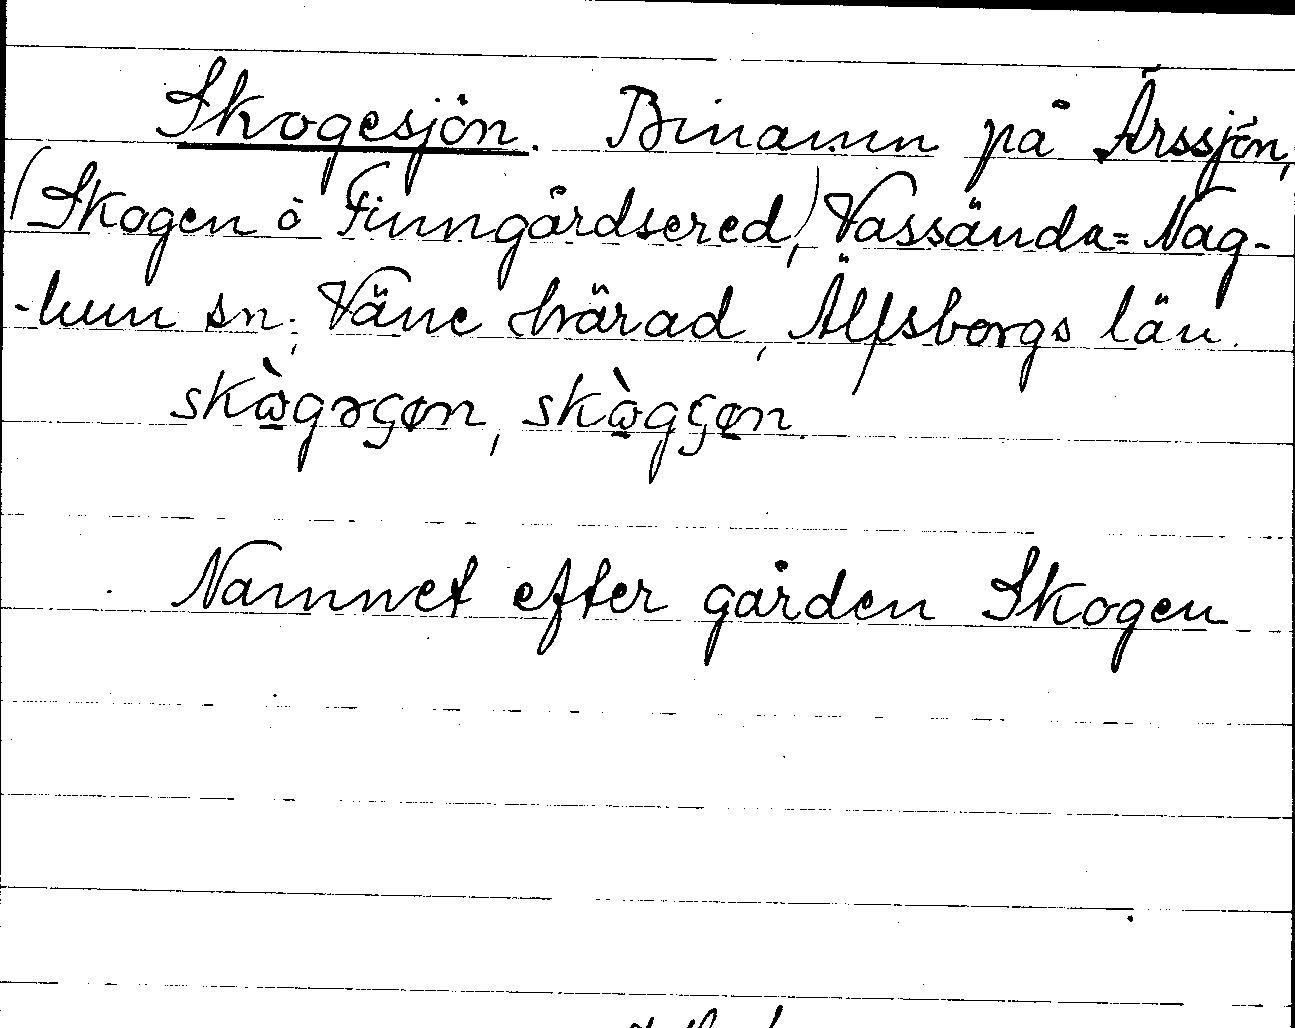 Skogesjön. Binamn på Ärssjön,
(Skogen o Finngårdsered), Vassända=Nag-
-lum sn, Väne härad, Älfsborgs län.
skὼgəʂøn, skὼgʂøn.
Namnet efter gården Skogen